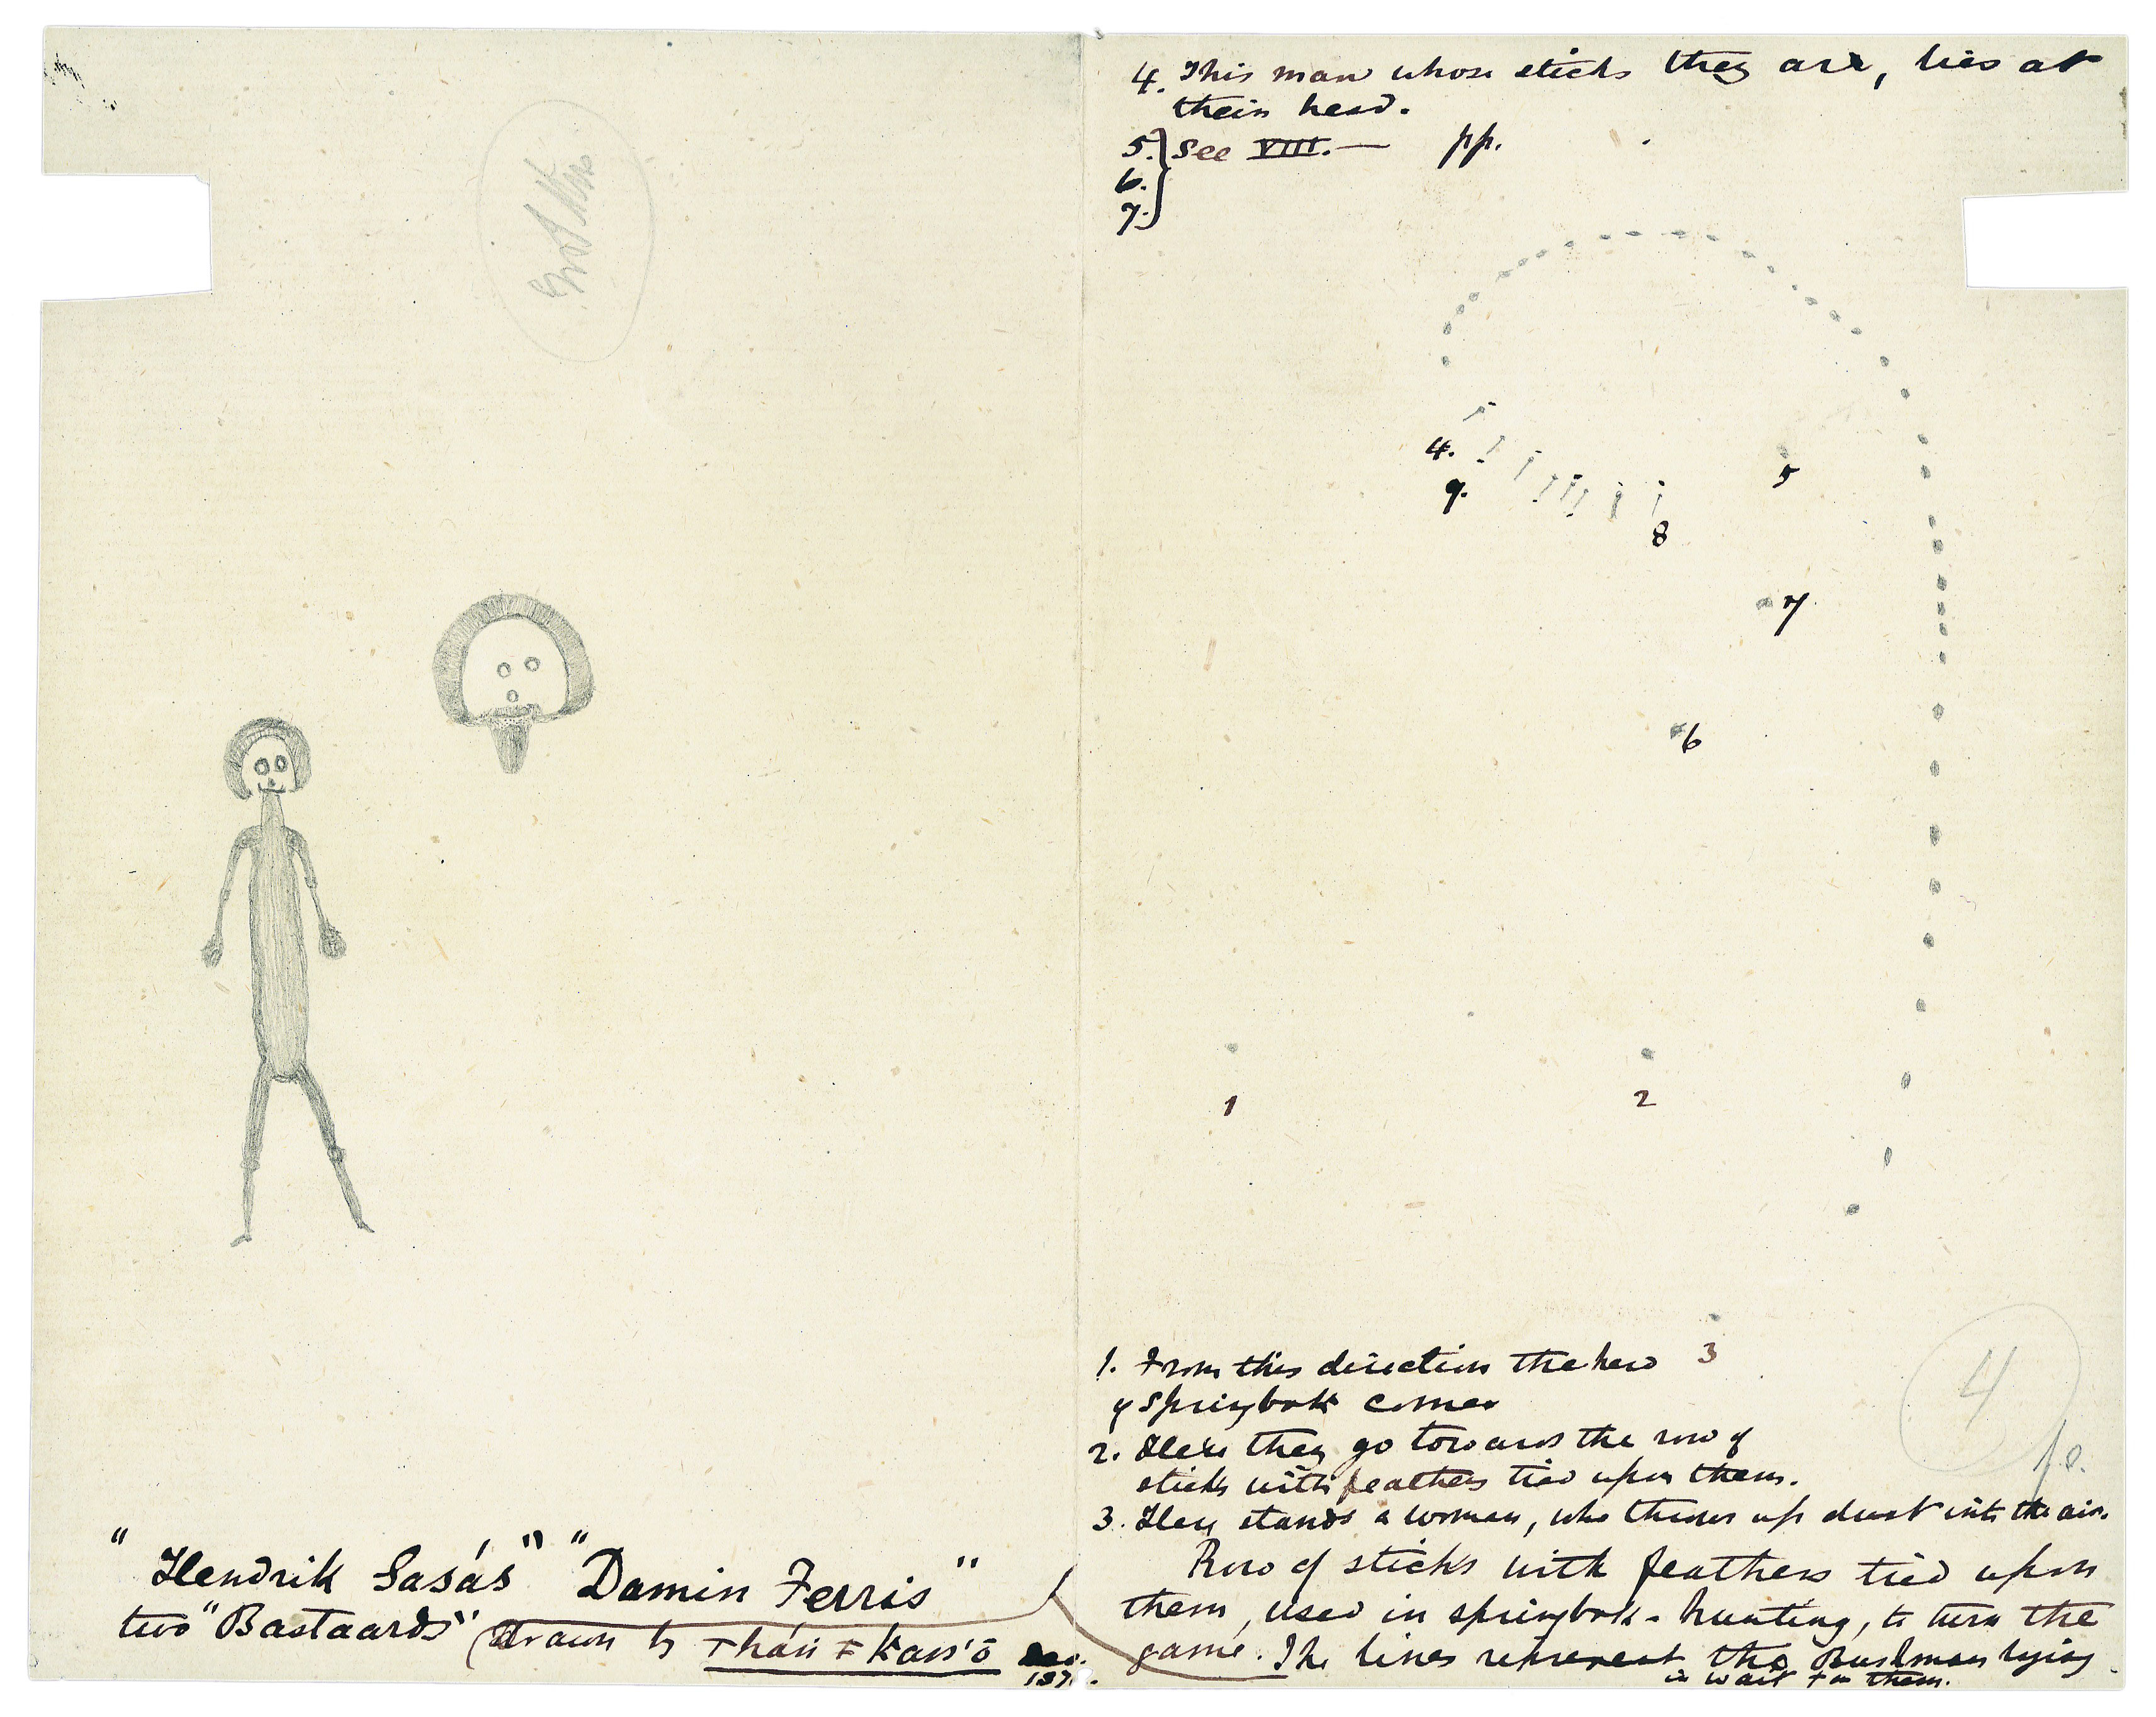 4. This man whose sticks they are, lies at
their head.
5. } See VIII. — pp.
6.
7.
4.
9.
5
8
7
6
1
2
3
1. From this direction the herd
of Springbok comes
2. Here they go towards the row of
sticks with feathers tied upon them.
3. Here stands a woman, who throws up dust into the air.
Row of sticks with feathers tied upon
them, used in springbok-hunting, to turn the
game. The lines represent the Bushman lying
in wait for them.
4
"Hendrik Sasás" "Damin Ferris"
two "Bastaards" (drawn by
187